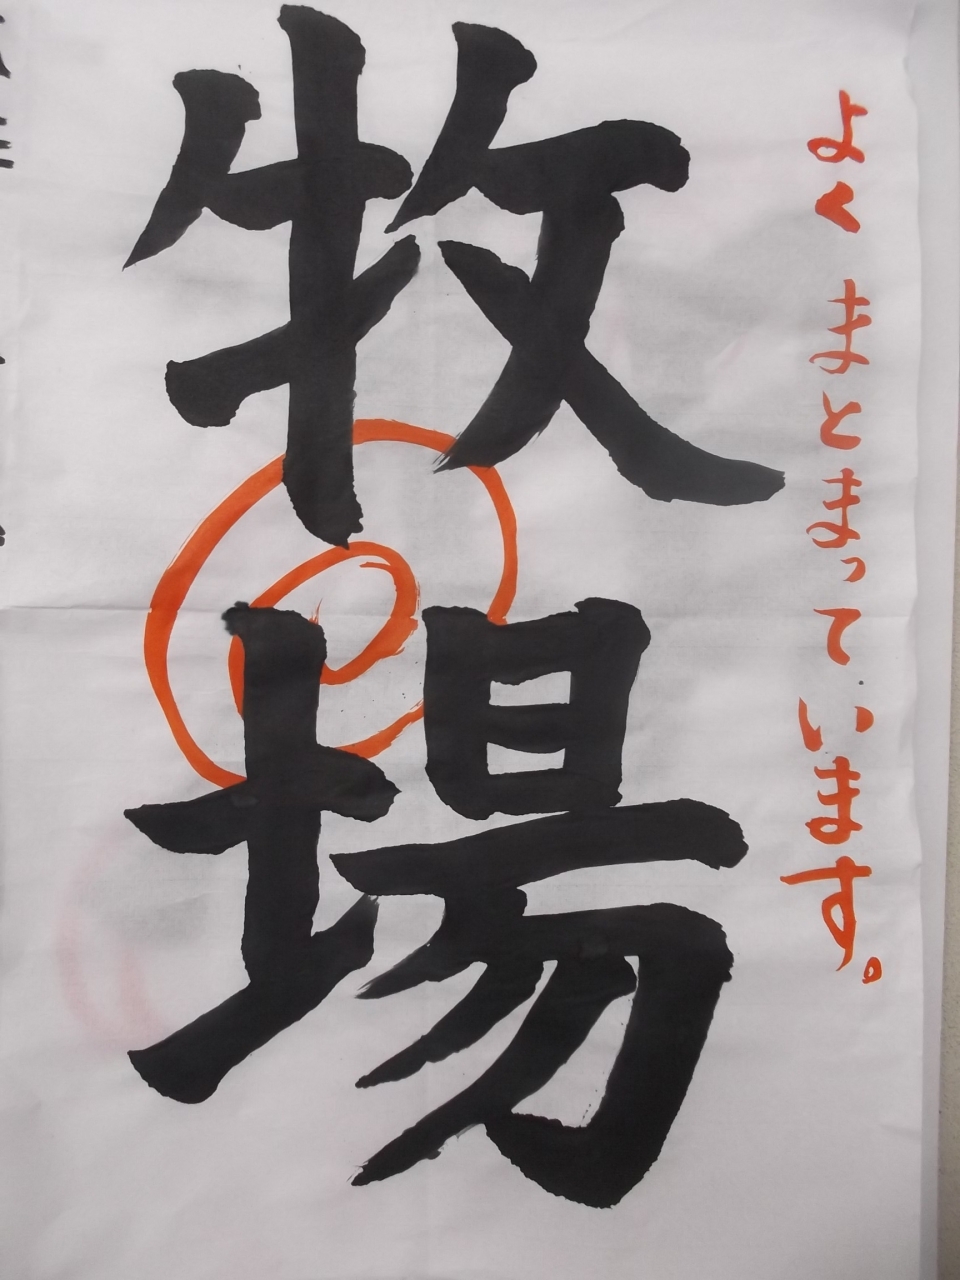 よくまとまっています。
牧場